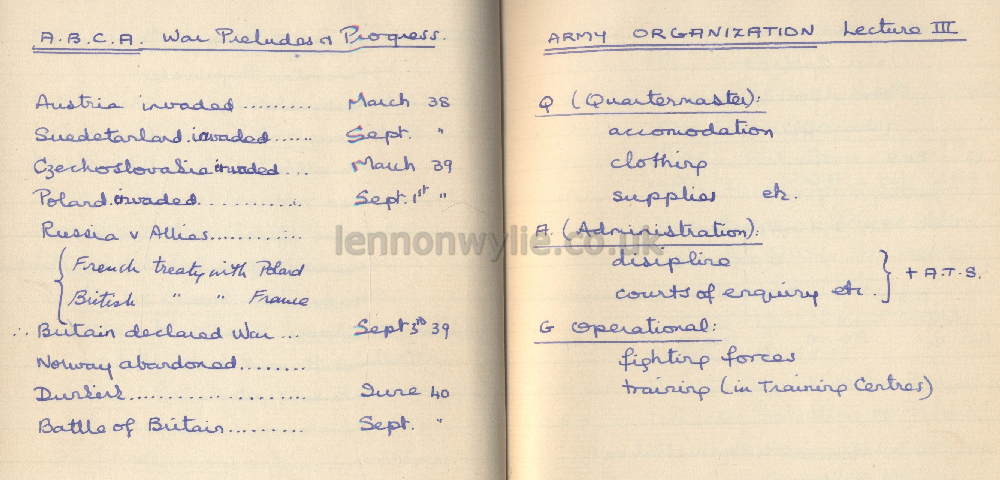 A.B.C.A. War Preludes & Progress.
Austria invaded ......... March 38
Suedetarland. invaded ...... Sept. "
Czechoslovakia invaded ... March 39
Poland. invaded. .......... Sept. 1st "
Russia v Allies...........
French treaty with Poland
British " " France
∴ Britain declared War ... Sept 3rd 39
Norway abandoned........
Dunkirk...................... June 40
Battle of Britain......... Sept. "
ARMY ORGANIZATION Lecture III
Q (Quartermaster):
accomodation
clothing
supplies etc.
A. (Administration):
disipline
courts of enquiry etc. } + A.T.S.
G Operational:
fighting forces
training (in Training Centres)
lennonwylie.co.uk